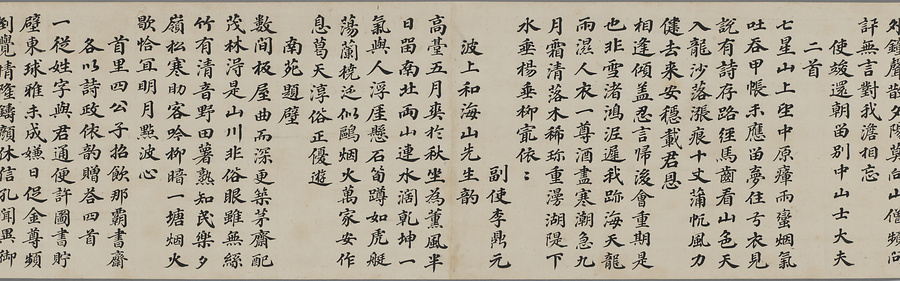 鐘聲散夕陽莫向山僧頻問
評無言對我澹相忘
使竣還朝留别中山士大夫
二首
七星山上坐中原瘴雨蠻烟氣
吐吞甲帳未應留夢住兮衣見
說有詩存路經馬齒看山色天
入龍沙落漲痕十丈蒲帆風力
健去來安穩載君恩
相逢傾盖忍言歸後會重期是
也非雪渚鴻泥遲我跡海天龍
雨濕人衣一尊酒盡寒潮急九
月霜清落木稀珎重灣湖隄下
水垂楊垂柳寔依〻
副使李鼎元
波上和海山先生韵
高臺五月爽於秋坐為薰風半
日留南北兩山連水濶乾坤一
氣與人浮厓懸石笋蹲如虎艇
蕩蘭橈泛似鷗烟火萬家安作
息葛天淳俗正優遊
南苑題壁
數間板屋曲而深更築茅齋配
茂林淂是山川非俗眼雖無絲
竹有清音野田薯熟知民樂夕
嶺松寒助客吟柳暗一塘烟火
歇恰宜明月點波心
首里四公子招飲那霸書齋
各以詩政依韵贈答四首
一從姓字與君通便許圖書貯
壁東球雅未成嫌日促金尊頻
到覺情隆鑄顏休信孔聞異御